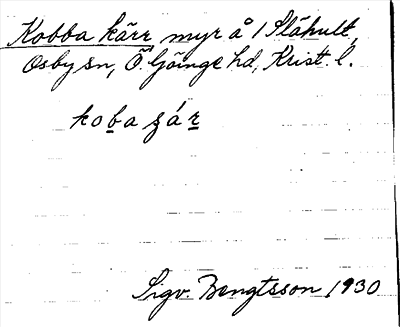 Kobba kärr myr å / Slähult,
Osby sn, Ö. Göinge hd, Krist. l.
koba
Sigv. Bengtsson 1930